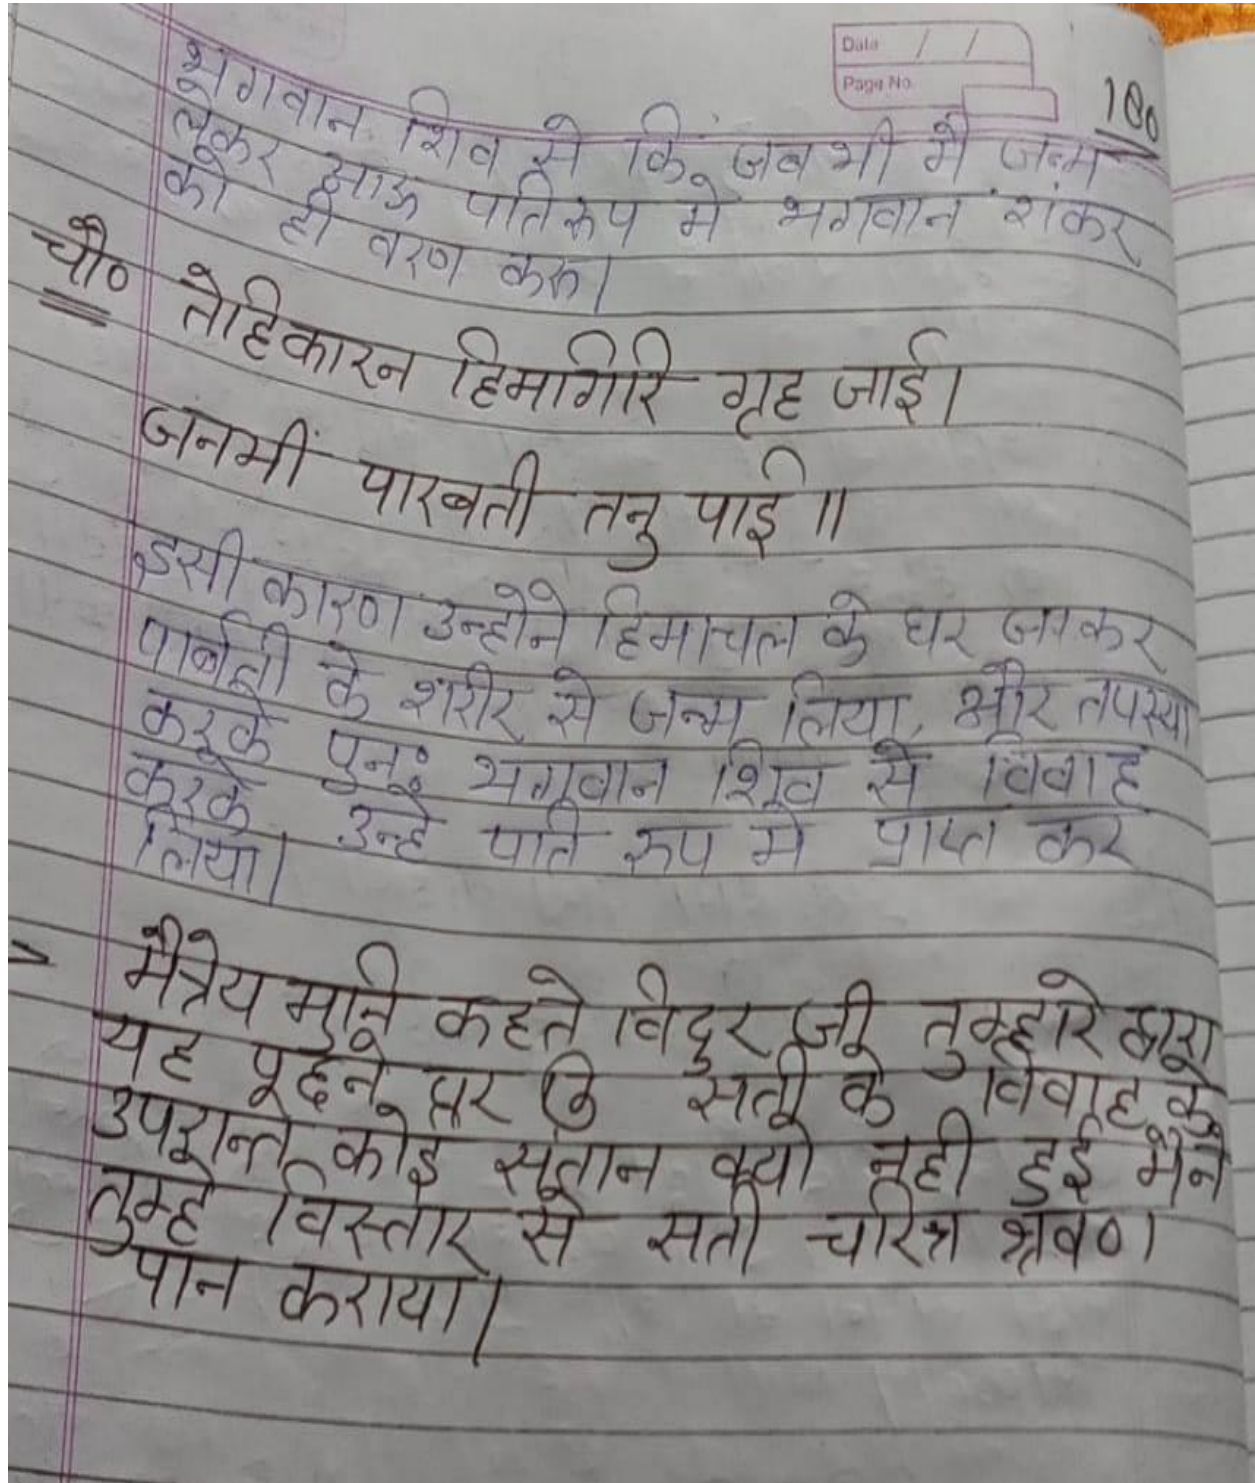 Date / /
Page No.
180
भगवान शिव से कि जब भी मै जन्म
लेकर आऊ पति रूप मे भगवान शंकर
को ही वरण करू।
चौ० तेहिकारन हिमगिरि गृह जाई।
जनमीं पारबती तनु पाई॥
इसी कारण उन्होने हिमाचल के घर जाकर
पार्बती के शरीर से जन्म लिया, और तपस्या
करके पुनः भगवान शिव से विवाह
करके उन्हे पति रूप मे प्राप्त कर
लिया।
मैत्रेय मुनि कहते विदुर जी तुम्हारे द्वारा
यह पूछने पर कि सती के विवाह के
उपरान्त कोई संतान क्यो नही हुई मैने
तुम्हे विस्तार से सती चरित्र श्रवण
पान कराया।